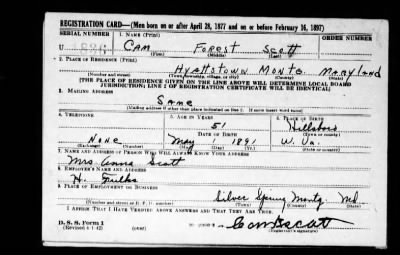 REGISTRATION CARD—(Men born on or after April 28, 1877 and on or before February 16, 1897)
SERIAL NUMBER 1. NAME (Print) ORDER NUMBER
U Cam Forest Scott
(First) (Middle) (Last)
2. PLACE OF RESIDENCE (Print)
Hyattstown Montg. Maryland
(Number and street) (Town, township, village, or city) (County) (State)
[THE PLACE OF RESIDENCE GIVEN ON THE LINE ABOVE WILL DETERMINE LOCAL BOARD
JURISDICTION; LINE 2 OF REGISTRATION CERTIFICATE WILL BE IDENTICAL]
3. MAILING ADDRESS
Same
[Mailing address if other than place indicated on line 2. If same insert word same]
4. TELEPHONE 5. AGE IN YEARS 6. PLACE OF BIRTH
51 Hillsboro
DATE OF BIRTH (Town or county)
None May 1 1891 W. Va.
(Exchange) (Number) (Mo.) (Day) (Yr.) (State or country)
7. NAME AND ADDRESS OF PERSON WHO WILL ALWAYS KNOW YOUR ADDRESS
Mrs. Anna Scott
8. EMPLOYER'S NAME AND ADDRESS
H.
9. PLACE OF EMPLOYMENT OR BUSINESS
Silver Spring Montg. Md.
(Number and street or R. F. D. number) (Town) (County) (State)
I AFFIRM THAT I HAVE VERIFIED ABOVE ANSWERS AND THAT THEY ARE TRUE.
D. S. S. Form 1
(Revised 4-1-42) (over) Cam F Scott
(Registrant's signature)